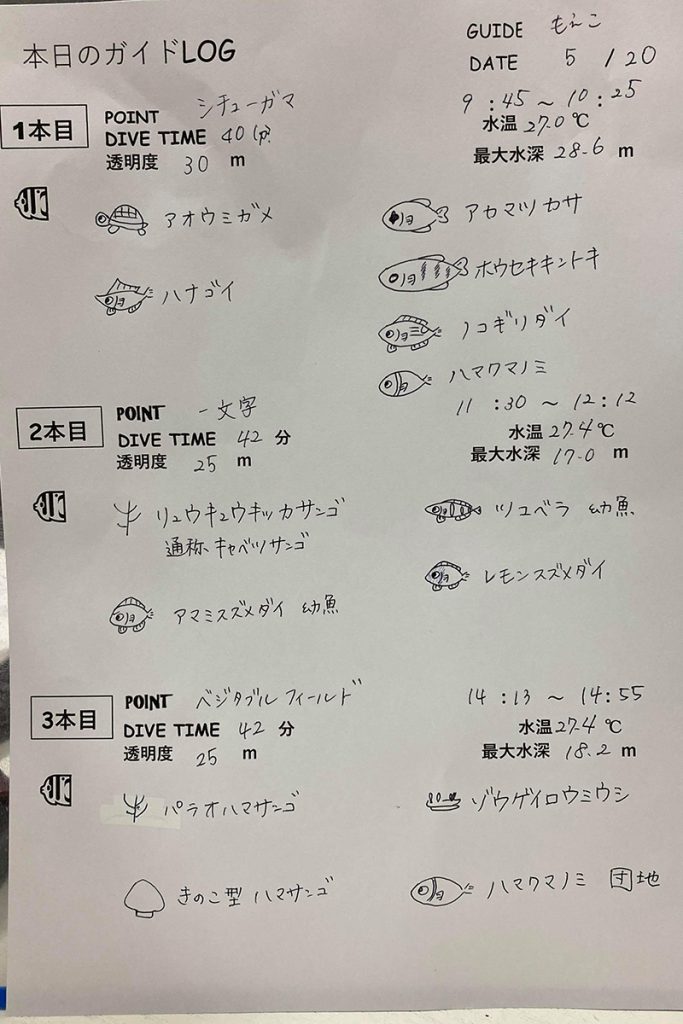 本日のガイドLOG
GUIDE もえこ
DATE 5 / 20
1本目
POINT シチューガマ
DIVE TIME 40分
透明度 30 m
9 : 45 ~ 10 : 25
水温 27.0 ℃
最大水深 28.6 m
アオウミガメ
ハナゴイ
アカマツカサ
ホウセキキントキ
ノコギリダイ
ハマクマノミ
2本目
POINT 一文字
DIVE TIME 42 分
透明度 25 m
11 : 30 ~ 12 : 12
水温 27.4 ℃
最大水深 17.0 m
リュウキュウキッカサンゴ
通称キャベツサンゴ
アマミスズメダイ 幼魚
ツユベラ 幼魚
レモンスズメダイ
3本目
POINT ベジタブルフィールド
DIVE TIME 42 分
透明度 25 m
14 : 13 ~ 14 : 55
水温 27.4 ℃
最大水深 18.2 m
パラオハマサンゴ
きのこ型 ハマサンゴ
ゾウゲイロウミウシ
ハマクマノミ 団地